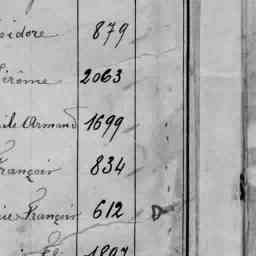 sidore 879
Jérôme 2063
ile Armand 1699
François 834
rie François 612 D
1897